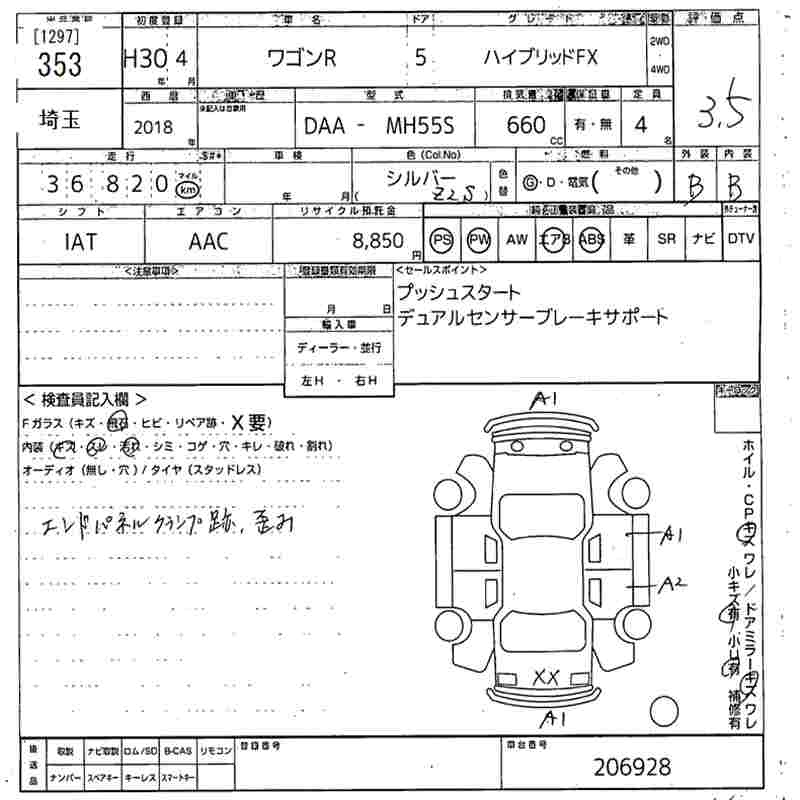 初度登録 車名 ドア グレード 評価点
[1297]
353 H30 4 ワゴンR 5 ハイブリッドFX 2WD 4WD
年 月
埼玉 西暦 型式 定員 3.5
2018 年 DAA - MH55S 660 CC 有・無 4 名
走行 車検 色(Col.No) 色替 燃料 外装 内装
36820 マイル km 年 月 シルバー (Z2S) G・D・電気( その他 ) B B
シフト エアコン リサイクル預託金
IAT AAC 8,850 円 PS PW AW エアB ABS 革 SR ナビ DTV
<注意事項> 登録書類有効期限 <セールスポイント>
月 日 プッシュスタート
輸入車 デュアルセンサーブレーキサポート
ディーラー・並行
左H ・ 右H
<検査員記入欄>
Fガラス(キズ・飛石・ヒビ・リペア跡・X要)
内装(キズ・スレ・汚れ・シミ・コゲ・穴・キレ・破れ・割れ)
オーディオ(無し・穴)/タイヤ(スタッドレス)
エンドパネルクランプ跡、歪み
A1
A1
A2
XX
A1
ホイル・CPキズワレ/ドアミラーキズワレ
小キズ有/小凹有 補修有
後送品 取説 ナビ取説 ロム/SD B-CAS リモコン 登録番号 車台番号
ナンバー スペアキー キーレス スマートキー 206928